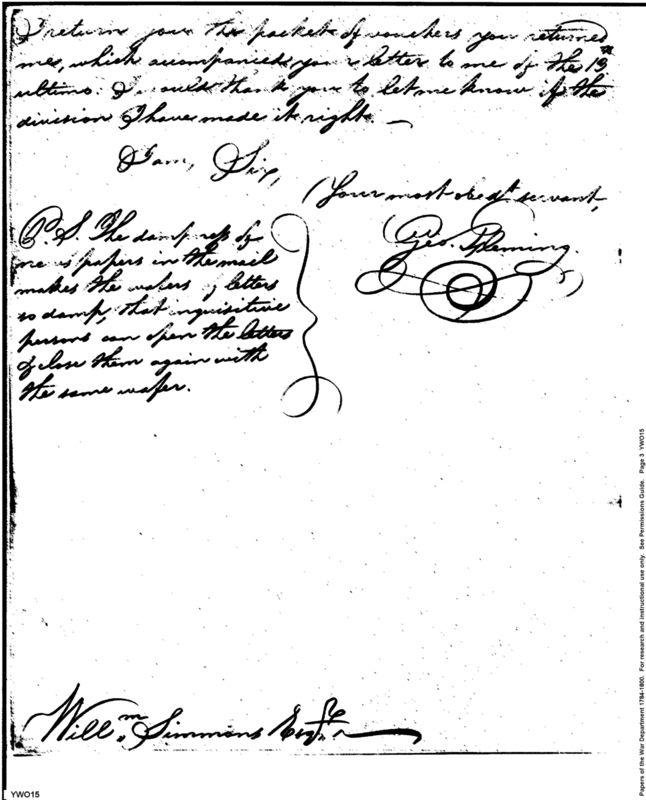 I return you the packet of vouchers you returned
me, which accompanied your letter to me of the 13th
ultimo. I would thank you to let me know if the
division I have made it right. —
I am, Sir,
Your most obedt servant,
Geo. Fleming.
P.S. The dampness of
newspapers in the mail
makes the wafers of letters
so damp, that inquisitive
persons can open the letters
& close them again with
the same wafer.
Willm Simmons Esqr.
YWO15
Papers of the War Department 1784-1800. For research and instructional use only. See Permissions Guide. Page 3 YWO15